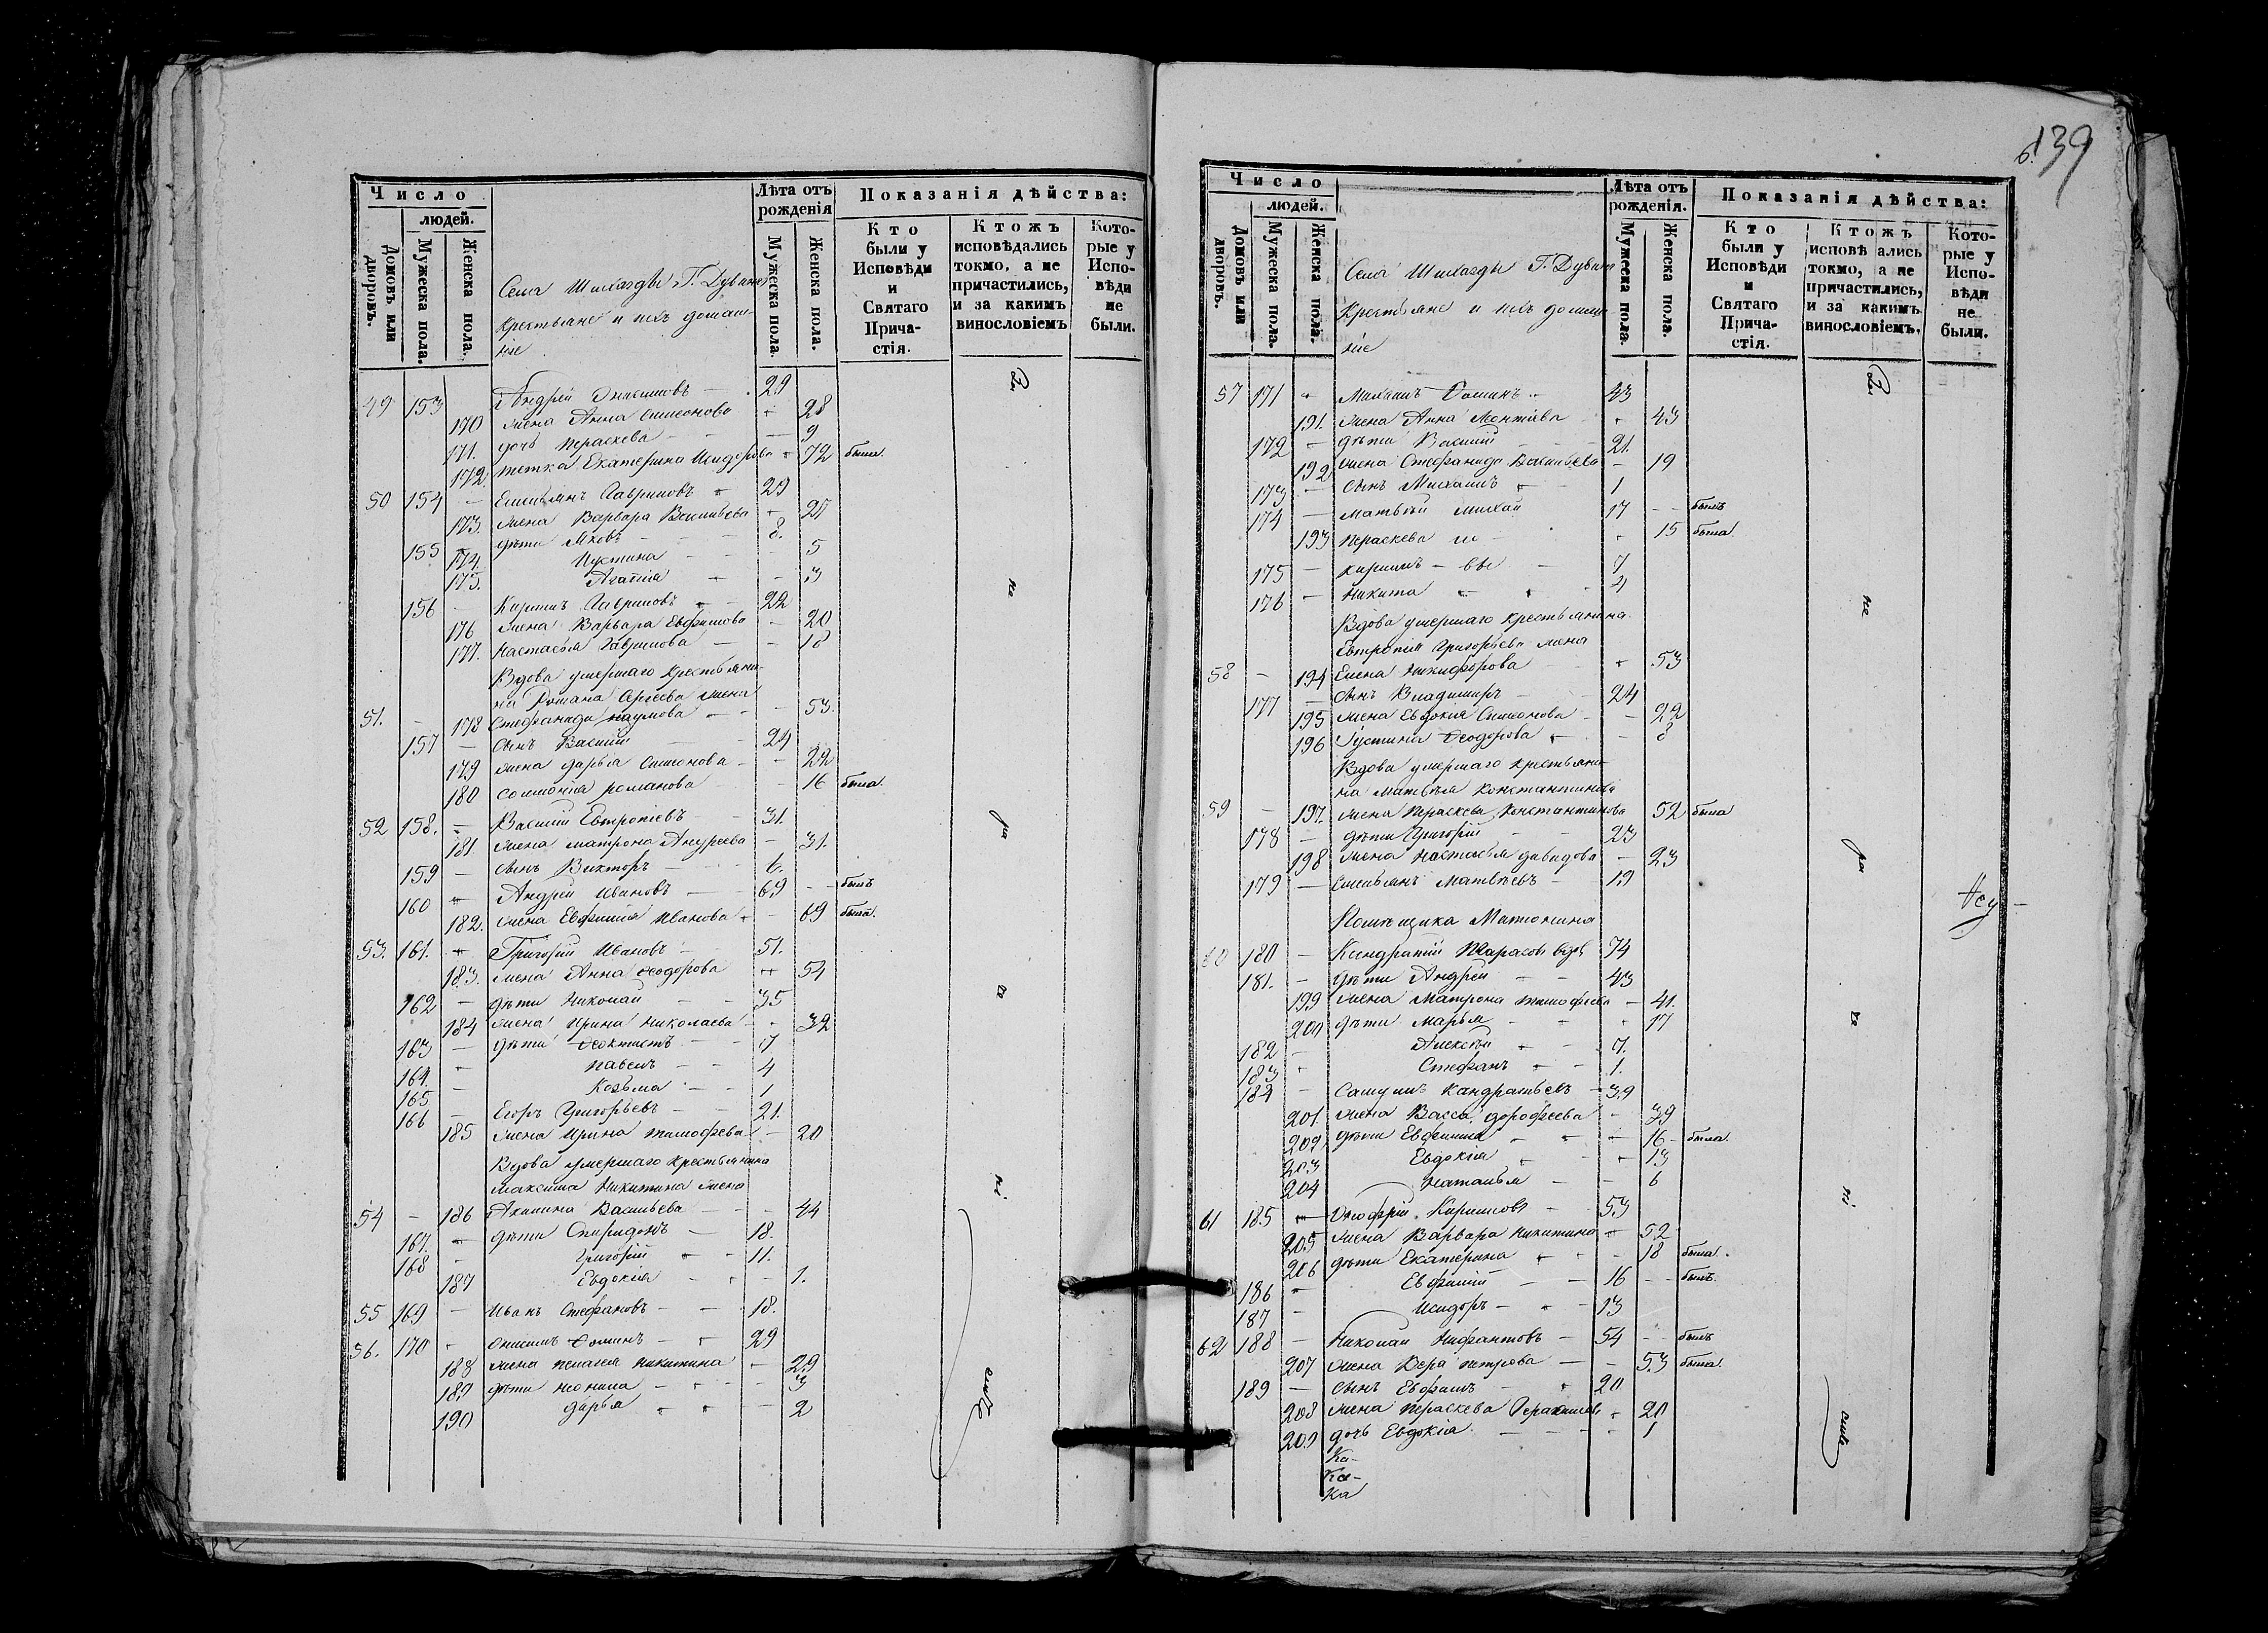 Число
людей.
Домовъ или дворовъ.
Мужеска пола.
Женска пола.
Села Г. Дубина
Крестьяне и ихъ домаш-
ніе
Лѣта отъ рожденія
Мужеска пола.
Женска пола.
Показанія дѣйства:
Кто были у Исповѣди и Святаго Прича-стія.
Ктожъ исповѣдались токмо, а не причастились, и за какимъ винословіемъ
Кото-рые у Испо-вѣди не были.
49 153 Андрей Онисимовъ 29
170 жена Анна Симеонова 28
171. дочь Пераскева 9
172. тетка Екатерина Исидорова 72 была.
50 154 Емельянъ Гавриловъ 29
173. жена Варвара Васильева
155 дѣти Яковъ 8.
174. Иустина 5
175. Агапія 3
156 Кирилъ Гавриловъ 22
176 жена Варвара Евфимова 20
177. Настасья Гаврилова 18
Вдова умершаго крестьяни-
на Романа Сергеева жена
51. 178 Стефанида Наумова 53.
157 сынъ Василій 24
179 жена Дарья Симеонова 22
180 Соломонія Романова 16 была.
52 158. Василій Евтропіевъ 31.
181 жена Матрона Андреева 31.
159 сынъ Викторъ 6.
160 Андрей Ивановъ 69 былъ
182. жена Евфимія Иванова 69 была.
53. 161. Григорій Ивановъ 51.
183. жена Анна Ѳеодорова 54
162 дѣти Николай 35
184 жена Ирина Николаева 32
163 дѣти Ѳеоктистъ 7
164. Павелъ 4
165 Козьма 1
166 Егоръ Григорьевъ 21.
185 жена Ирина Тимофеева 20
Вдова умершаго крестьянина
Максима Никитина жена
54 186 Акилина Васильева 44
167. дѣти Спиридонъ 18.
168 Григорій 11.
187 Евдокія 1.
55 169 Иванъ Стефановъ 18.
56. 170 Онисимъ Ѳоминъ 29
188 жена Пелагея Никитина 29
189 дѣти Неонила 3
190 Дарья 2
За не ра че ні емъ
139
Число
людей.
Домовъ или дворовъ.
Мужеска пола.
Женска пола.
Села Г. Дубина
Крестьяне и ихъ домаш-
ніе
Лѣта отъ рожденія.
Мужеска пола.
Женска пола.
Показанія дѣйства:
Кто были у Исповѣди и Святаго Прича-стія.
Ктожъ исповѣ ались токмо, а не причастились, и за какимъ винословіемъ.
Кото-рые у Испо-вѣди не были.
57 171 Михаилъ Ѳоминъ 43
191. жена Анна 43
172 дѣти Василій 21.
192 жена Стефанида Васильева 19
173 сынъ Михаилъ 1
174 Матвѣй Михай 17 былъ
193 Пераскева ло 15 была.
175 Кирилъ вы 7
176 Никита 4
Вдова умершаго крестьянина
Евтропія Григорьева жена
58 194 Елена Никифорова 53
177 сынъ Владимиръ 24
195 жена Евдокія Симеонова 22
196 Іустина Ѳеодорова 8
Вдова умершаго крестьяни-
на Матвѣя Константинова
59 197. жена Пераскева Константинова 52 была
178 дѣти Григорій 23
198 жена Настасья Давидова 23
179 Емельянъ Матвѣевъ 19
Помѣщика Матюнина
60 180 Кандратій Тарасовъ вдов 74
181. дѣти Андрей 43
199 жена Матрона Тимофеева 41.
200 дѣти Марья 17
182 Алексѣй 7.
183 Стефанъ 1.
184 Самуилъ Кандратьевъ 39
201. жена Васса Дорофеева 39
202 дѣти Евфимія 16 была.
203 Евдокія 13
204 Наталья 6
61 185 Онофрій Кириловъ 53
205 жена Варвара Никитина 52
206 дѣти Екатерина 18 была.
186 Евфимій 16 былъ.
187 Исидоръ 13
62 188 Николай Нифантовъ 54 былъ
207 жена Вера Петрова 53 была.
189 сынъ Евфимъ 20
208 жена Пераскева 20
209 дочь Евдокія 1
Ка-
Ка-
Ка
За не ра че ні емъ